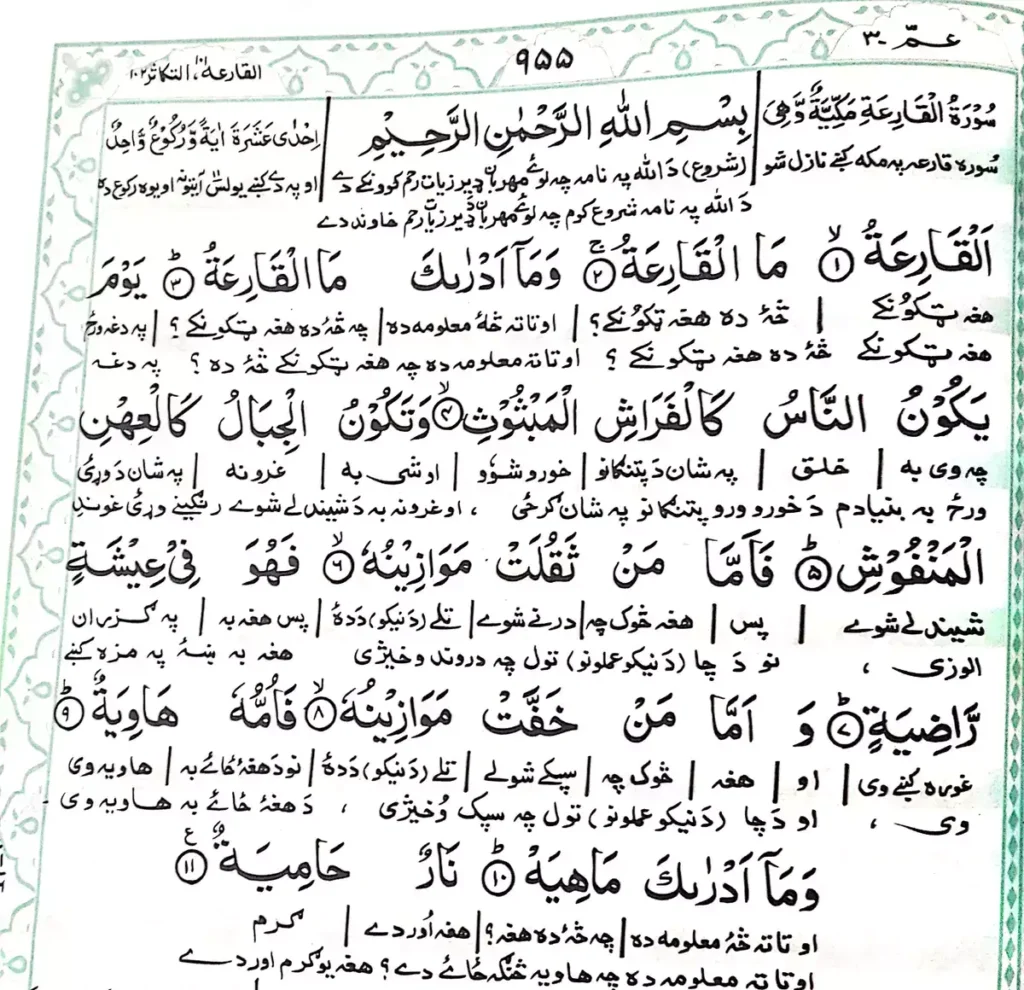 عـمّ ۳۰
۹۵۵
القارعة ۱۰۱، التکاثر ۱۰۲
سُوْرَةُ الْقَارِعَةِ مَكِّيَّةٌ وَّهِیَ
بِسْمِ اللهِ الرَّحْمٰنِ الرَّحِیْمِ
اِحْدٰی عَشَرَةَ اٰیَةً وَّرُكُوْعٌ وَّاحِدٌ
سُورہ قارعہ پہ مکہ کښے نازل شو
(شروع) دَ اللہ پہ نامہ چہ لوئے مھربان ډیر زیات رحم کوونکے دے
او پہ دے کښے یولس آیتونہ او یوہ رکوع دہ
دَ اللہ پہ نامہ شروع کوم چہ لوئے مھربان ډیر زیات رحم خاوند دے
اَلْقَارِعَةُ ۙ﴿۱﴾ مَا الْقَارِعَةُ ۚ﴿۲﴾ وَمَاۤ اَدْرٰىكَ مَا الْقَارِعَةُ ؕ﴿۳﴾ یَوْمَ
ھغہ ټکونکے | څۂ دہ ھغہ ټکونکے؟ | او تا تہ څۂ معلومہ دہ | چہ څۂ دہ ھغہ ټکونکے؟ | پہ دغہ ورځ
ھغہ ټکونکے څۂ دہ ھغہ ټکونکے ؟ او تا تہ معلومہ دہ چہ ھغہ ټکونکے څۂ دہ ؟ پہ دغہ
یَكُوْنُ النَّاسُ كَالْفَرَاشِ الْمَبْثُوْثِ ۙ﴿۴﴾ وَتَكُوْنُ الْجِبَالُ كَالْعِهْنِ
چہ وی بہ | خلق | پہ شان دَ پتنگانو | خورو شوو | او شی بہ | غرونہ | پہ شان دَ وړئ
ورځ بہ بنیادم دَ خورو ورو پتنگانو پہ شان گرځی ، او غرونہ بہ دَ شیندلے شوے رنگینے وړئ غوندے
الْمَنْفُوْشِ ؕ﴿۵﴾ فَاَمَّا مَنْ ثَقُلَتْ مَوَازِیْنُهٗ ۙ﴿۶﴾ فَهُوَ فِیْ عِیْشَةٍ
شیندلے شوے | پس | ھغہ څوک چہ | درنے شوے | تلے (دَ نیکو) دَ دۂ | پس ھغہ بہ | پہ گزران
الوزی ، نو دَ چا (دَ نیکو عملونو) تول چہ دروند وخیژی ھغہ بہ ښۂ پہ مزہ کښے
رَّاضِیَةٍ ؕ﴿۷﴾ وَ اَمَّا مَنْ خَفَّتْ مَوَازِیْنُهٗ ۙ﴿۸﴾ فَاُمُّهٗ هَاوِیَةٌ ؕ﴿۹﴾
غورہ کښے وی | او | ھغہ | څوک چہ | سپکے شولے | تلے (دَ نیکو) دَ دۂ | نو دَ ھغۂ ځائے بہ | ھاویہ وی
وی ، او دَ چا (دَ نیکو عملونو) تول چہ سپک وُخیژی ، دَ ھغۂ ځائے بہ ھاویہ وی
وَمَاۤ اَدْرٰىكَ مَاهِیَهْ ؕ﴿۱۰﴾ نَارٌ حَامِیَةٌ ﴿۱۱﴾ ع
او تا تہ څۂ معلومہ دہ | چہ څۂ دہ ھغہ؟ | ھغہ اُور دے | گرم
او تا تہ معلومہ دہ چہ ھاویہ څنگہ ځائے دے؟ ھغہ یو گرم اور دے